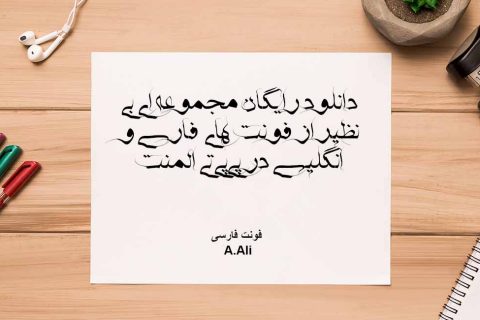 دانلود رایگان مجموعه‌ای بی
نظیر از فونت های فارسی و
انگلیسی در پی‌پی‌تی المنت
فونت فارسی
A.Ali